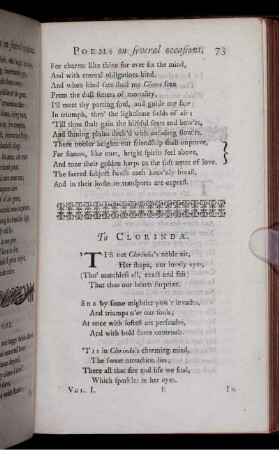 POEMS on several occasions. 73
For charms like thine for ever fix the mind,
And with eternal obligations bind.
And when kind fate shall my Cleone free
From the dull fetters of mortality,
I'll meet thy parting soul, and guide my fair
In triumph, thro' the lightsome fields of air;
'Till thou shalt gain the blissful seats and bow'rs,
And shining plains deck'd with unfading flow'rs.
There nobler heights our friendship shall improve,
For flames, like ours, bright spirits feel above,
And tune their golden harps to the soft notes of love.
The sacred subject swells each heav'nly breast,
And in their looks its transports are exprest.
To CLORINDA.
'TIS not Clorinda's noble air,
Her shape, nor lovely eyes,
(Tho' matchless all, exact and fair)
That thus our hearts surprize.
SHE by some mightier pow'r invades,
And triumps o'er our souls;
At once with softest art persuades,
And with bold force controuls.
'TIS in Clorinda's charming mind,
The sweet attraction lies;
There all that fire and life we find,
Which sparkles in her eyes.
VOL. I. E IN